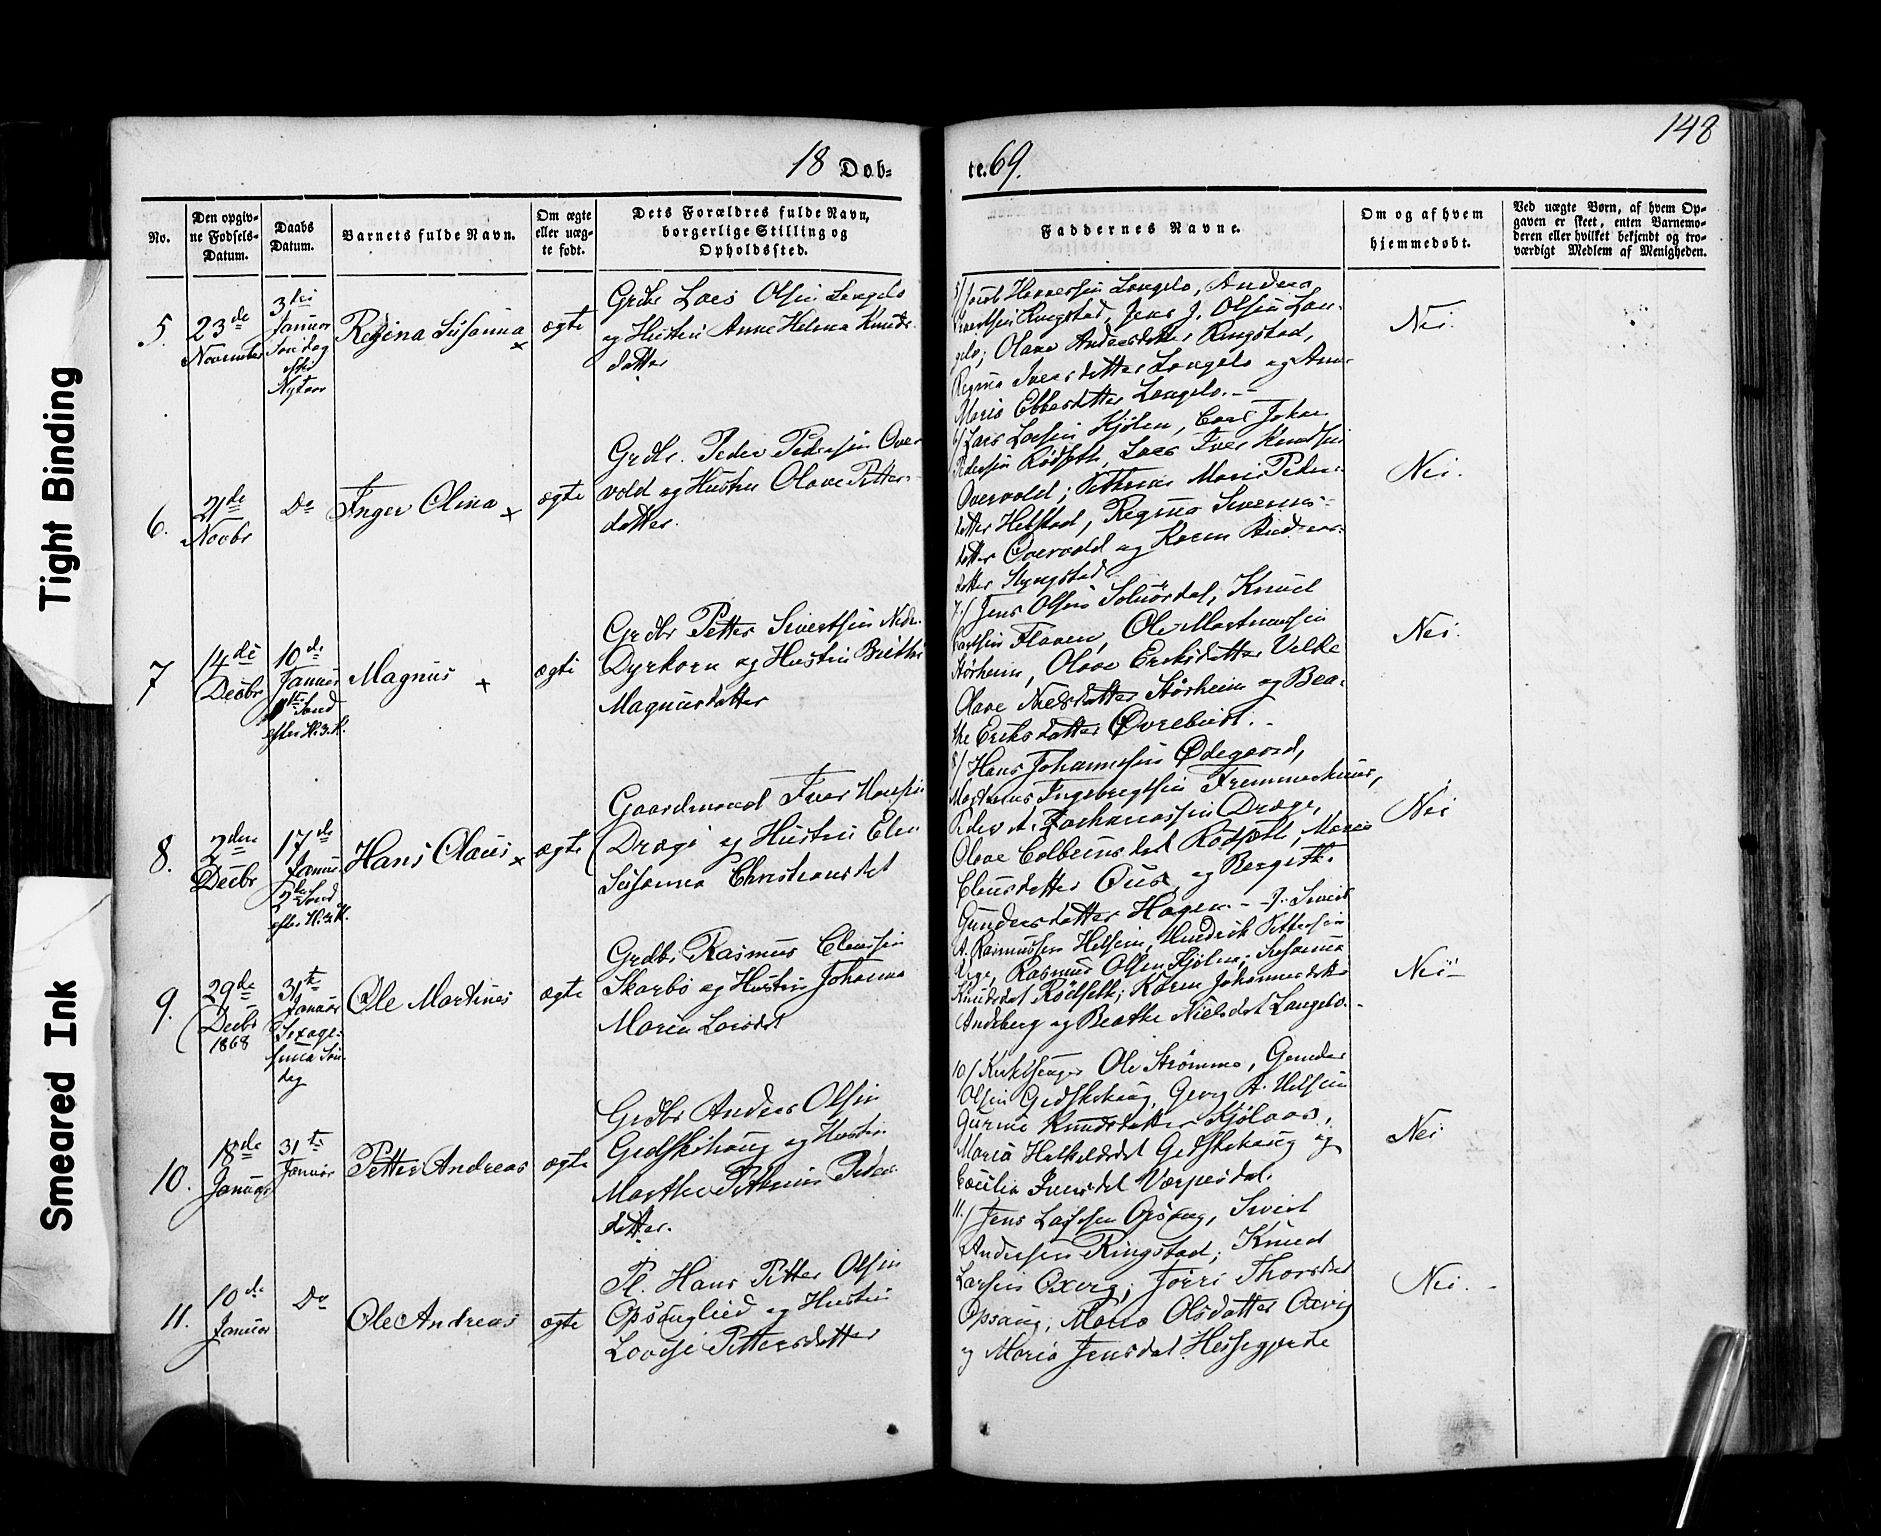 148
18 Døb=
te. 69.
Tight Binding
Smeared Ink
No.
Den opgiv=
ne Fødsels=
Datum.
Daabs
Datum.
Barnets fulde Navn.
Om ægte
eller uæg=
te født.
Dets Forældres fulde Navn,
borgerlige Stilling og
Opholdssted.
Faddernes Navne.
Om og af hvem
hjemmedøbt.
Ved uægte Børn, af hvem Op=
gaven er skeet, enten Barnemo=
deren eller hvilket bekjendt og tro=
værdigt Medlem af Menigheden.
5.
23de
November
3die
Januar
Søndag
efter
Nytaar
Regina Susanna x
ægte
Grdbr Lars Olsen Langelo
og Hustru Anne Helena Knuds
datter
5/ Jacob Langelo, Andreas
Ringstad, Jens J. Olsen Lan-
gelo; Olave Andersdatter Ringstad,
Regina Iversdatter Langelo og Ane
Maria Ebbesdatter Langelo.-
Nei.
6.
21de
Novbr
Do
Inger Olina x
ægte
Grdbr. Peder Pedersen Over
vold og Hustru Olave Petter-
datter.
6/ Lars Larsen Kjølen, Carl Johan
Pedersen Rødseth, Lars Iver Knudsen
Overvold; Pethrine Marie Peder-
datter Helstad, Regina Severins-
datter Overvold og Karen Andreas-
datter Ringstad
Nei.
7
14de
Decbr
10de
Januar
1ste Sønd
efter H.3.K.
Magnus x
ægte
Grdbr Petter Sivertsen Nedr.
Dyrkorn og Hustru Birthe
Magnusdatter
7./ Jens Olsen Solnørdal, Knud
Larssen Flaaen, Ole Martinussen
Størheim, Olave Eriksdatter Velke
Olave Nielsdatter Størheim og Bea-
the Eriksdatter Øvrebust.-
Nei.
8.
2den
Decbr
17de
Januar
2den Sønd
efter H.3.K.
Hans Claus x
ægte
Gaardmand Iver Hansen
Drage og Hustru Elen
Susanna Christiansdat
8/ Hans Johannesen Ødegaard,
Martinus Ingebregtsen Fremmerhuus,
Peder A. Zachariassen Drage,
Olave Colbeinsdat Rødseth, Maria
Clausdatter Ouse og Bergith.
Gundersdatter Hagen.-
Nei
9.
29de
Decbr
1868
31te
Januar
Sexage-
sima Søn-
dag
Ole Martinus
ægte
Grdbr. Rasmus Clausen
Skarbø og Hustru Johanna
Maria Larsdat
9. Sivert
A. Rasmussen Helsem, Hendrik Pettersen
Vige, Rasmus Olsen Kjølen; Susanna
Knudsdat Rødseth; Karen Johannesdat
Andeberg og Beathe Nielsdat Langelo.-
Nei-
10.
18de
Januar
31te
Januar
Petter Andreas
ægte
Grdbr Anders Olsen
Gjedskehaug og Hustru
Marthe Pethrine Peder
datter.
10/ Kirkesanger Ole Strømme, Gunder
Olsen Gjedskehaug, Georg A. Helsem
Gurine Knudsdatter Kjølaas,
Maria Helkildsdat Gjedskehaug og
Cecilia Iversdat Værpesdal.
Nei
11.
10de
Januar
Do
Ole Andreas
ægte
Pl. Hans Petter Olsen
Opsauglied og Hustru
Lovise Pettersdatter
11./ Jens Larsen Opsaug, Sivert
Andersen Ringstad; Knud
Larsen Oxvig; Jørri Thorsdat
Opsaug; Maria Olsdatter Oxvig
og Maria Jensdat Hessegjerde
Nei.-